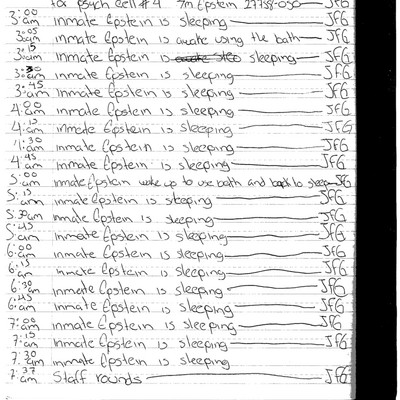 for psych cell #4
3:00 am inmate Epstein is sleeping JFG
3:05 am inmate Epstein is awake using the bath JFG
3:15 am inmate Epstein is sleeping JFG
3:30 am inmate Epstein is sleeping JFG
3:45 am inmate Epstein is sleeping JFG
4:00 am inmate Epstein is sleeping JFG
4:15 am inmate Epstein is sleeping JFG
4:30 am inmate Epstein is sleeping JFG
4:45 am inmate Epstein is sleeping JFG
5:00 am inmate Epstein woke up to use bath and back to sleep JFG
5:15 am inmate Epstein is sleeping JFG
5:30 am inmate Epstein is sleeping JFG
5:45 am inmate Epstein is sleeping JFG
6:00 am inmate Epstein is sleeping JFG
6:15 am inmate Epstein is sleeping JFG
6:30 am inmate Epstein is sleeping JFG
6:45 am inmate Epstein is sleeping JFG
7:00 am inmate Epstein is sleeping JFG
7:15 am inmate Epstein is sleeping JFG
7:30 am inmate Epstein is sleeping
7:37 am Staff rounds JFG